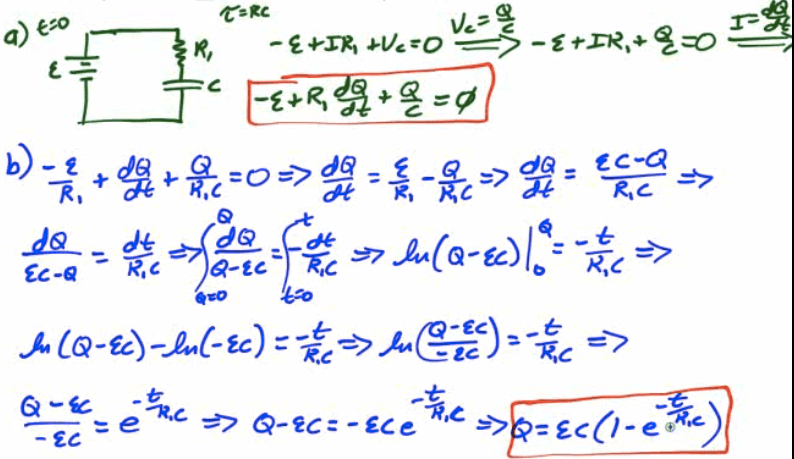 a) t=0 τ=RC
ε R₁ C
-ε+IR₁+V_c=0 ⟹(V_c=Q/C) -ε+IR₁+Q/C=0 ⟹(I=dQ/dt)
-ε+R₁ dQ/dt + Q/C = 0
b) -ε/R₁ + dQ/dt + Q/R₁C = 0 => dQ/dt = ε/R₁ - Q/R₁C => dQ/dt = (εC-Q)/R₁C =>
dQ/(εC-Q) = dt/R₁C => ∫_{Q=0}^{Q} dQ/(Q-εC) = ∫_{t=0}^{t} -dt/R₁C => ln(Q-εC)|₀^Q = -t/R₁C =>
ln(Q-εC)-ln(-εC) = -t/R₁C => ln((Q-εC)/-εC) = -t/R₁C =>
(Q-εC)/-εC = e^(-t/R₁C) => Q-εC = -εC e^(-t/R₁C) => Q=εC(1-e^(-t/R₁C))